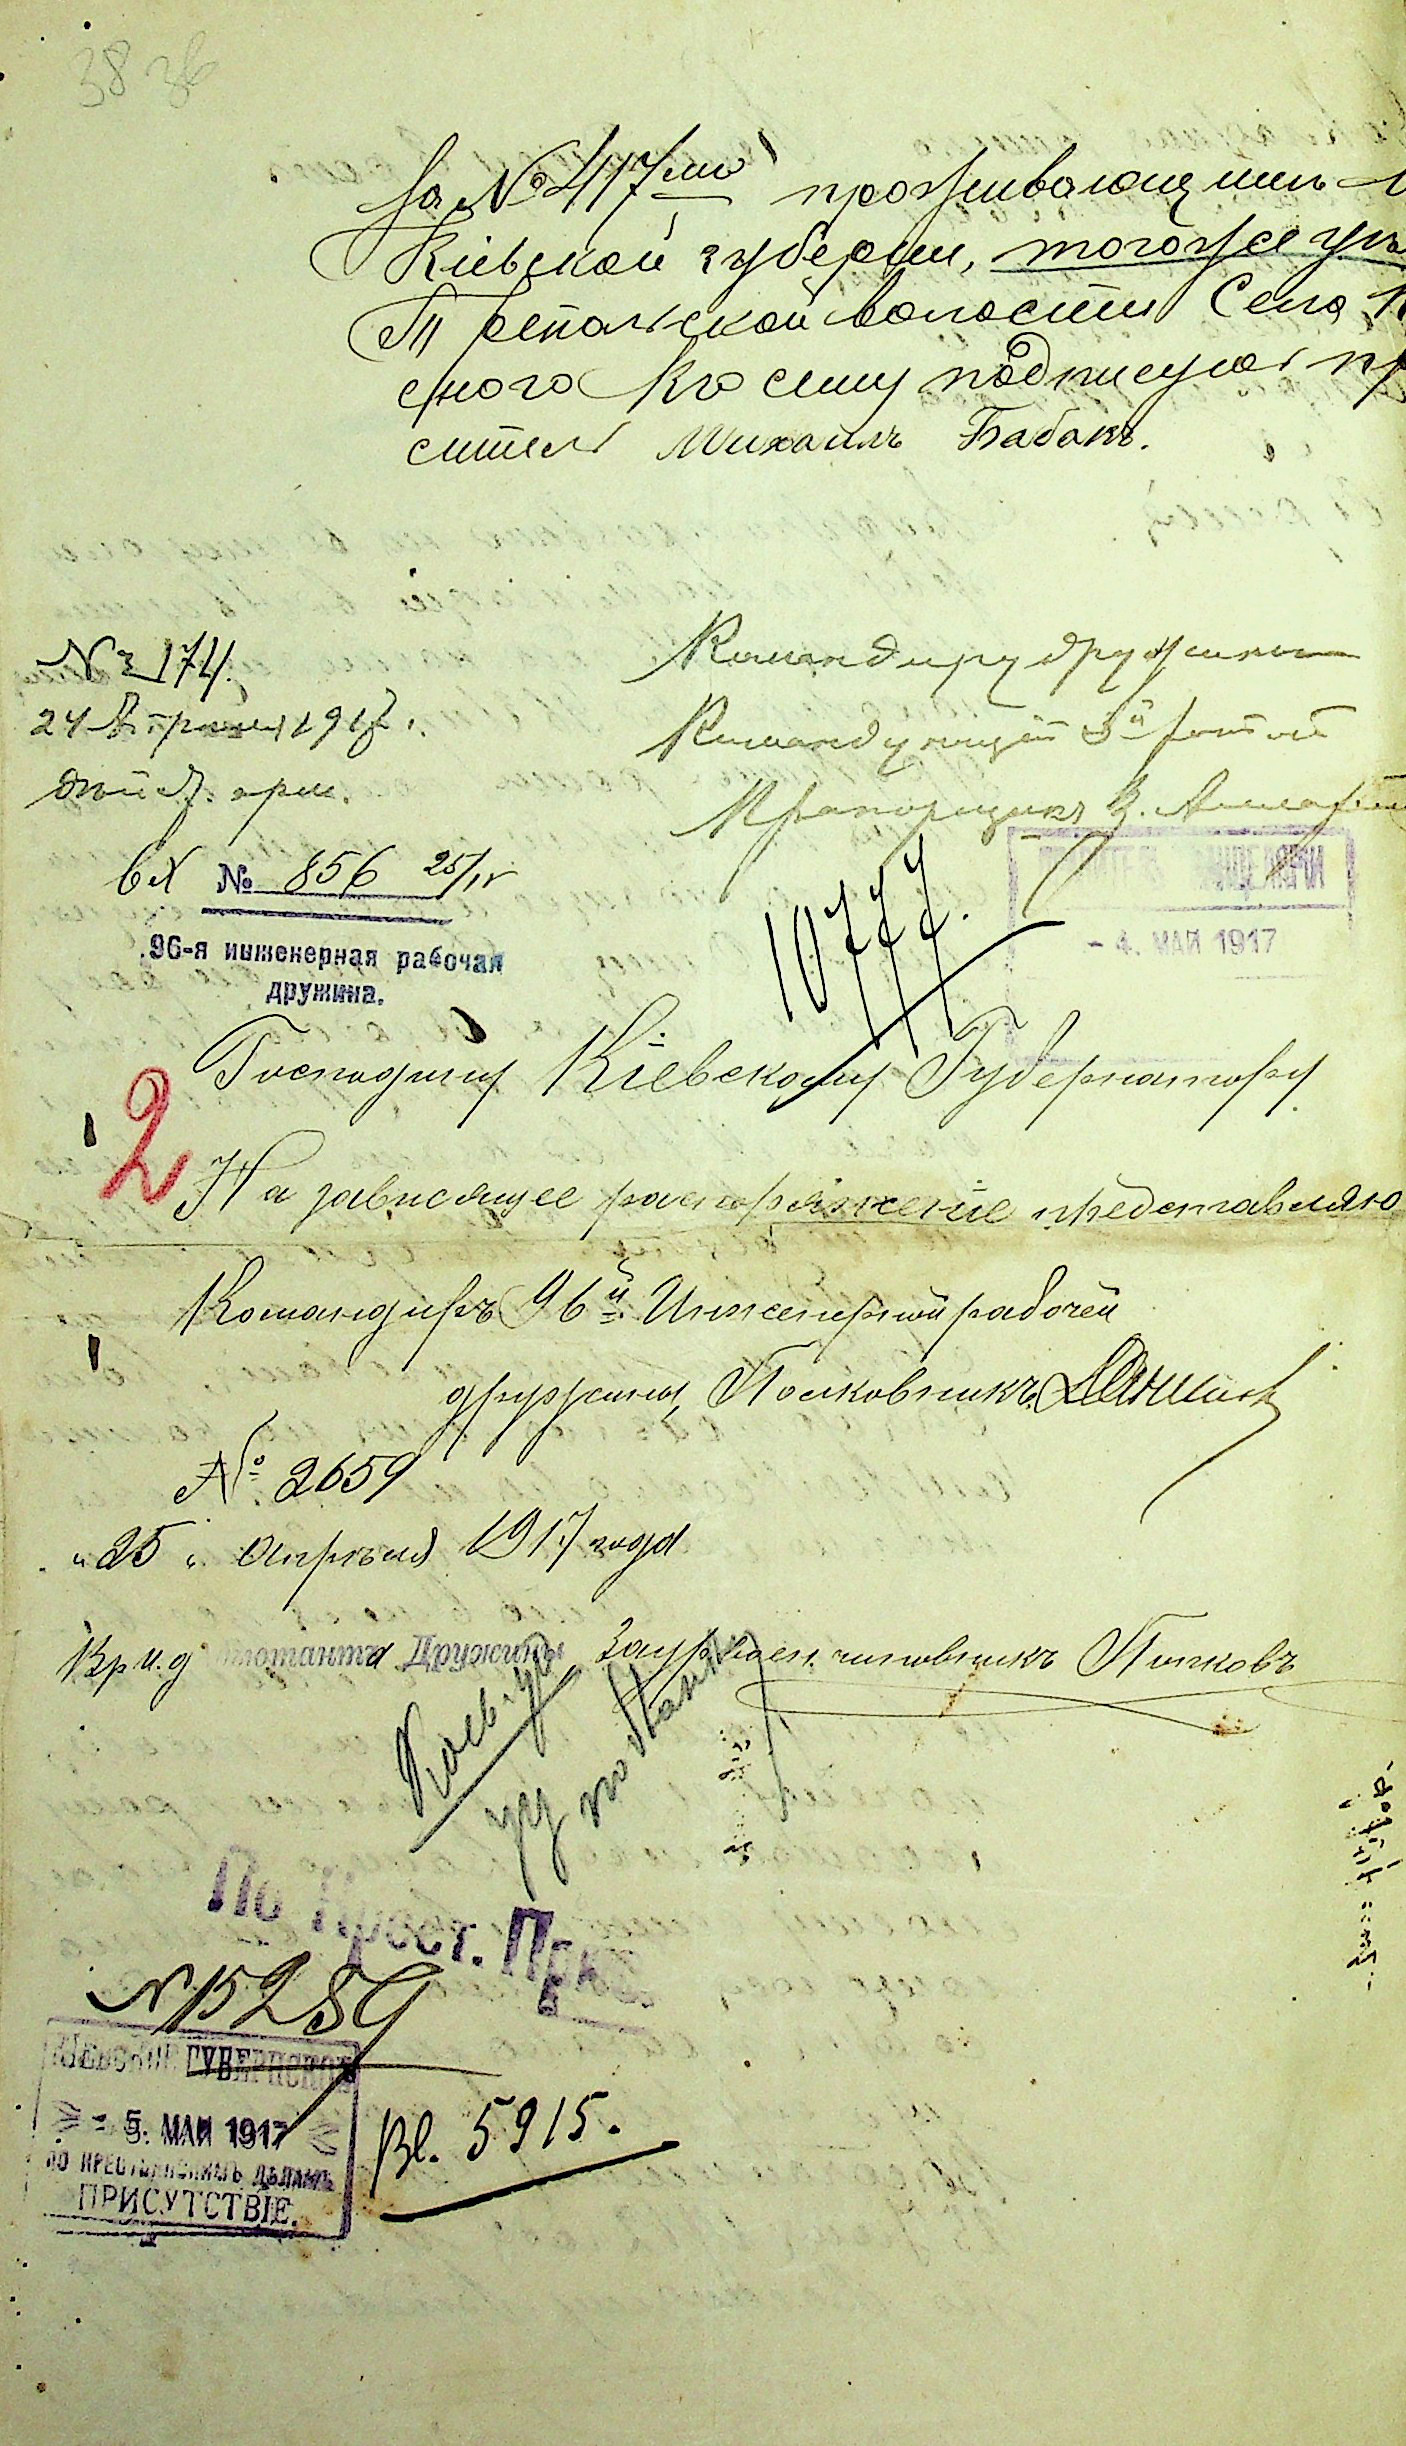 38 зв
за № 417мъ проживающимъ
Кіевской губерніи, тогоже
Трепольской волости Села
сного Къ сему подписуюсь
ситель Михаилъ Бабакъ.
№ 174.
24 Апреля 1917.
Дѣйст. арм.
Командиру дружины
Командующій 5й ротой
Прапорщикъ
вх № 856 25/IV
96-я инженерная рабочая
дружина.
10777.
- 4. МАЙ 1917
Господину Кіевскому Губернатору
2
На зависящее распоряженіе представляю
Командиръ 96й Инженерной рабочей
дружины, Полковникъ
№ 2659
"25" Апрѣля 1917 года
Вр. и. д Дружины Заур. воен. чиновникъ
Кіев. у.
По Крест. Прис.
№ 15289
КІЕВСКОЕ ГУБЕРНСКОЕ
- 5. МАЙ 1917
ПО КРЕСТЬЯНСКИМЪ ДѢЛАМЪ
ПРИСУТСТВІЕ.
Вх. 5915.